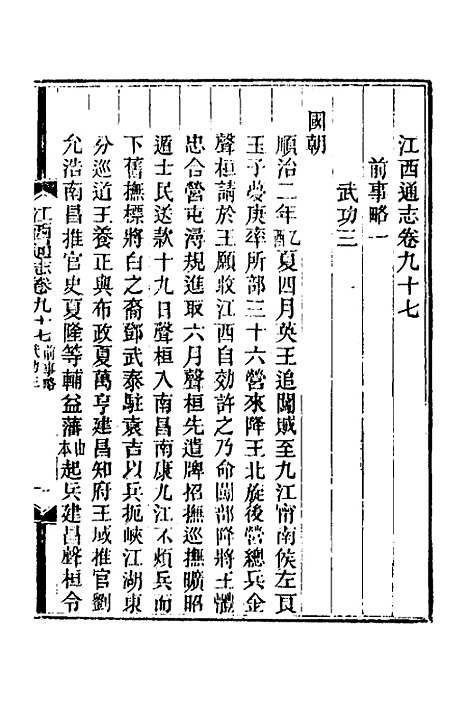 江西通志卷九十七
前事略一
武功三
國朝
順治二年乙酉夏四月英王追闖賊至九江甯南侯左良
玉子夢庚率所部三十六營來降王北旋後營總兵金
聲桓請於王願收江西自効許之乃命闖部降將王體
忠合營屯潯規進取六月聲桓先遣牌招撫巡撫曠昭
遁士民送款十九日聲桓入南昌南康九江不煩兵而
下舊撫標將白之裔鄧武泰駐袁吉以兵扼峽江湖東
分巡道王養正與布政夏萬亨建昌知府王域推官劉
允浩南昌推官史夏隆等輔益藩由本起兵建昌聲桓令
江西通志卷九十七 前事略 武功三 一